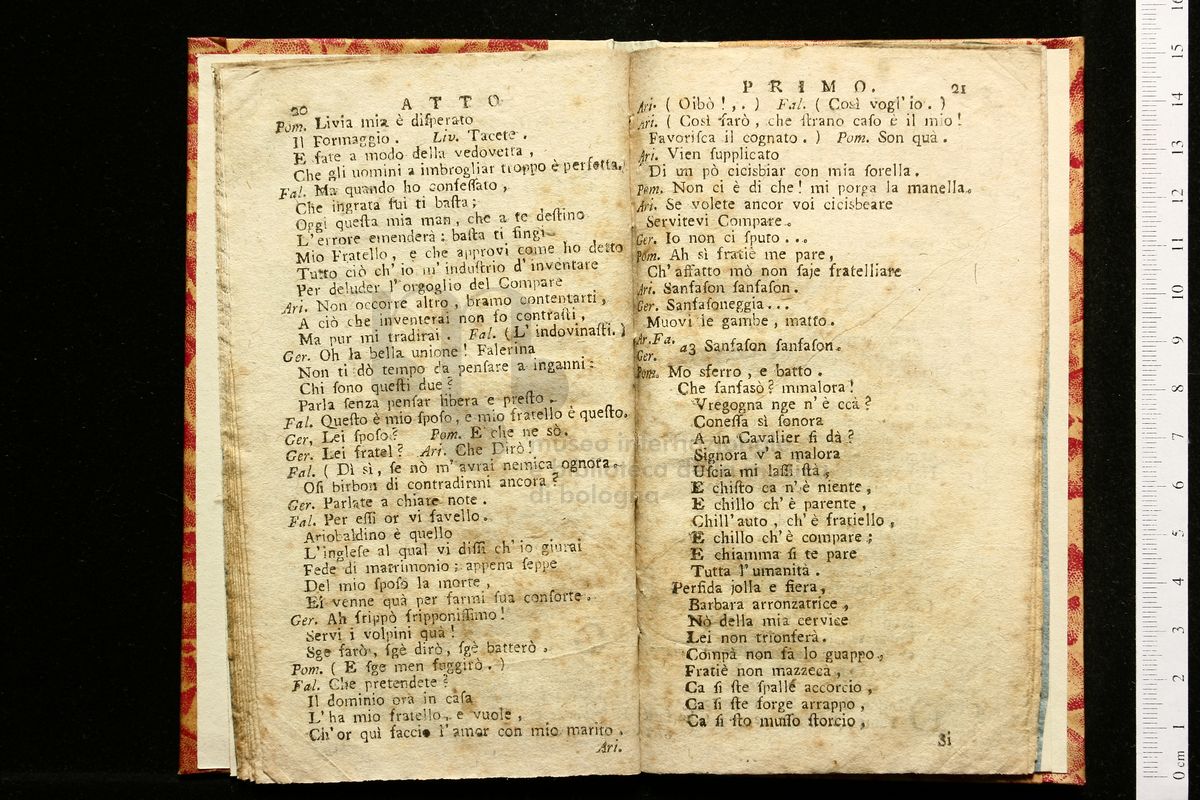 20 ATTO
Pom. Livia mia è diſperato
Il Formaggio. Liv. Tacete.
E fate a modo della vedovetta,
Che gli uomini a imbrogliar troppo è perfetta.
Fal. Ma quando ho confeſſato,
Che ingrata fui ti baſta;
Oggi queſta mia man, che a te deſtino
L'errore emenderà: baſta ti fingi
Mio Fratello, e che approvi come ho detto
Tutto ciò ch'io m'induſtrio d'inventare
Per deluder l'orgoglio del Compare
Ari. Non occorre altro, bramo contentarti,
A ciò che inventerai non fo contraſti,
Ma pur mi tradirai. Fal. (L'indovinaſti.)
Ger. Oh la bella unione! Falerina
Non ti dò tempo da penſare a inganni:
Chi ſono queſti due?
Parla ſenza penſar libera e preſto.
Fal. Queſto è mio ſpoſo, e mio fratello è queſto.
Ger. Lei ſpoſo? Pom. E che ne sò.
Ger. Lei fratel? Ari. Che Dirò!
Fal. (Dì sì, ſe nò m'avrai nemica ognora.
Oſi birbon di contradirmi ancora?
Ger. Parlate a chiare note.
Fal. Per eſſi or vi favello.
Ariobaldino è quello
L'ingleſe al qual vi diſſi ch'io giurai
Fede di matrimonio; appena ſeppe
Del mio ſpoſo la morte,
Ei venne quà per farmi ſua conſorte.
Ger. Ah frippò fripponiſſimo!
Servi i volpini quà!
Sge farò, ſgè dirò, ſgè batterò.
Pom. (E ſge men fuggirò.)
Fal. Che pretendete?
Il dominio ora in caſa
L'ha mio fratello, e vuole,
Ch'or quì faccia l'amor con mio marito.
Ari.
PRIMO. 21
Ari. (Oibò!,.) Fal. (Così vogl'io.)
Ari. (Così farò, che ſtrano caſo è il mio!
Favoriſca il cognato.) Pom. Son quà.
Ari. Vien ſupplicato
Di un pò cicisbiar con mia ſorella.
Pom. Non ci è di che! mi porga la manella.
Ari. Se volete ancor voi cicisbeare
Servitevi Compare.
Ger. Io non ci ſputo...
Pom. Ah sì fratiè me pare,
Ch'affatto mò non ſaje fratelliare
Ari. Sanfaſon ſanfaſon.
Ger. Sanfaſoneggia...
Muovi le gambe, matto.
Ar. Fa. Ger. a3 Sanfaſon ſanfaſon.
Pom. Mo sferro, e batto.
Che ſanfasò? mmalora!
Vregogna nge n'è ccà?
Coneſſa sì ſonora
A un Cavalier ſi dà?
Signora v'a malora
Uſcia mi laſſi ſtà,
E chiſto ca n'è niente,
E chillo ch'è parente,
Chill'auto, ch'è fratiello,
E chillo ch'è compare;
E chiamma ſi te pare
Tutta l'umanità.
Perfida jolla e fiera,
Barbara arronzatrice,
Nò della mia cervice
Lei non trionferà.
Compà non fà lo guappo,
Fratiè non mazzeca,
Ca ſi ſte ſpalle accorcio,
Ca ſi ſte forge arrappo,
Ca ſi ſto muſſo ſtorcio,
Si